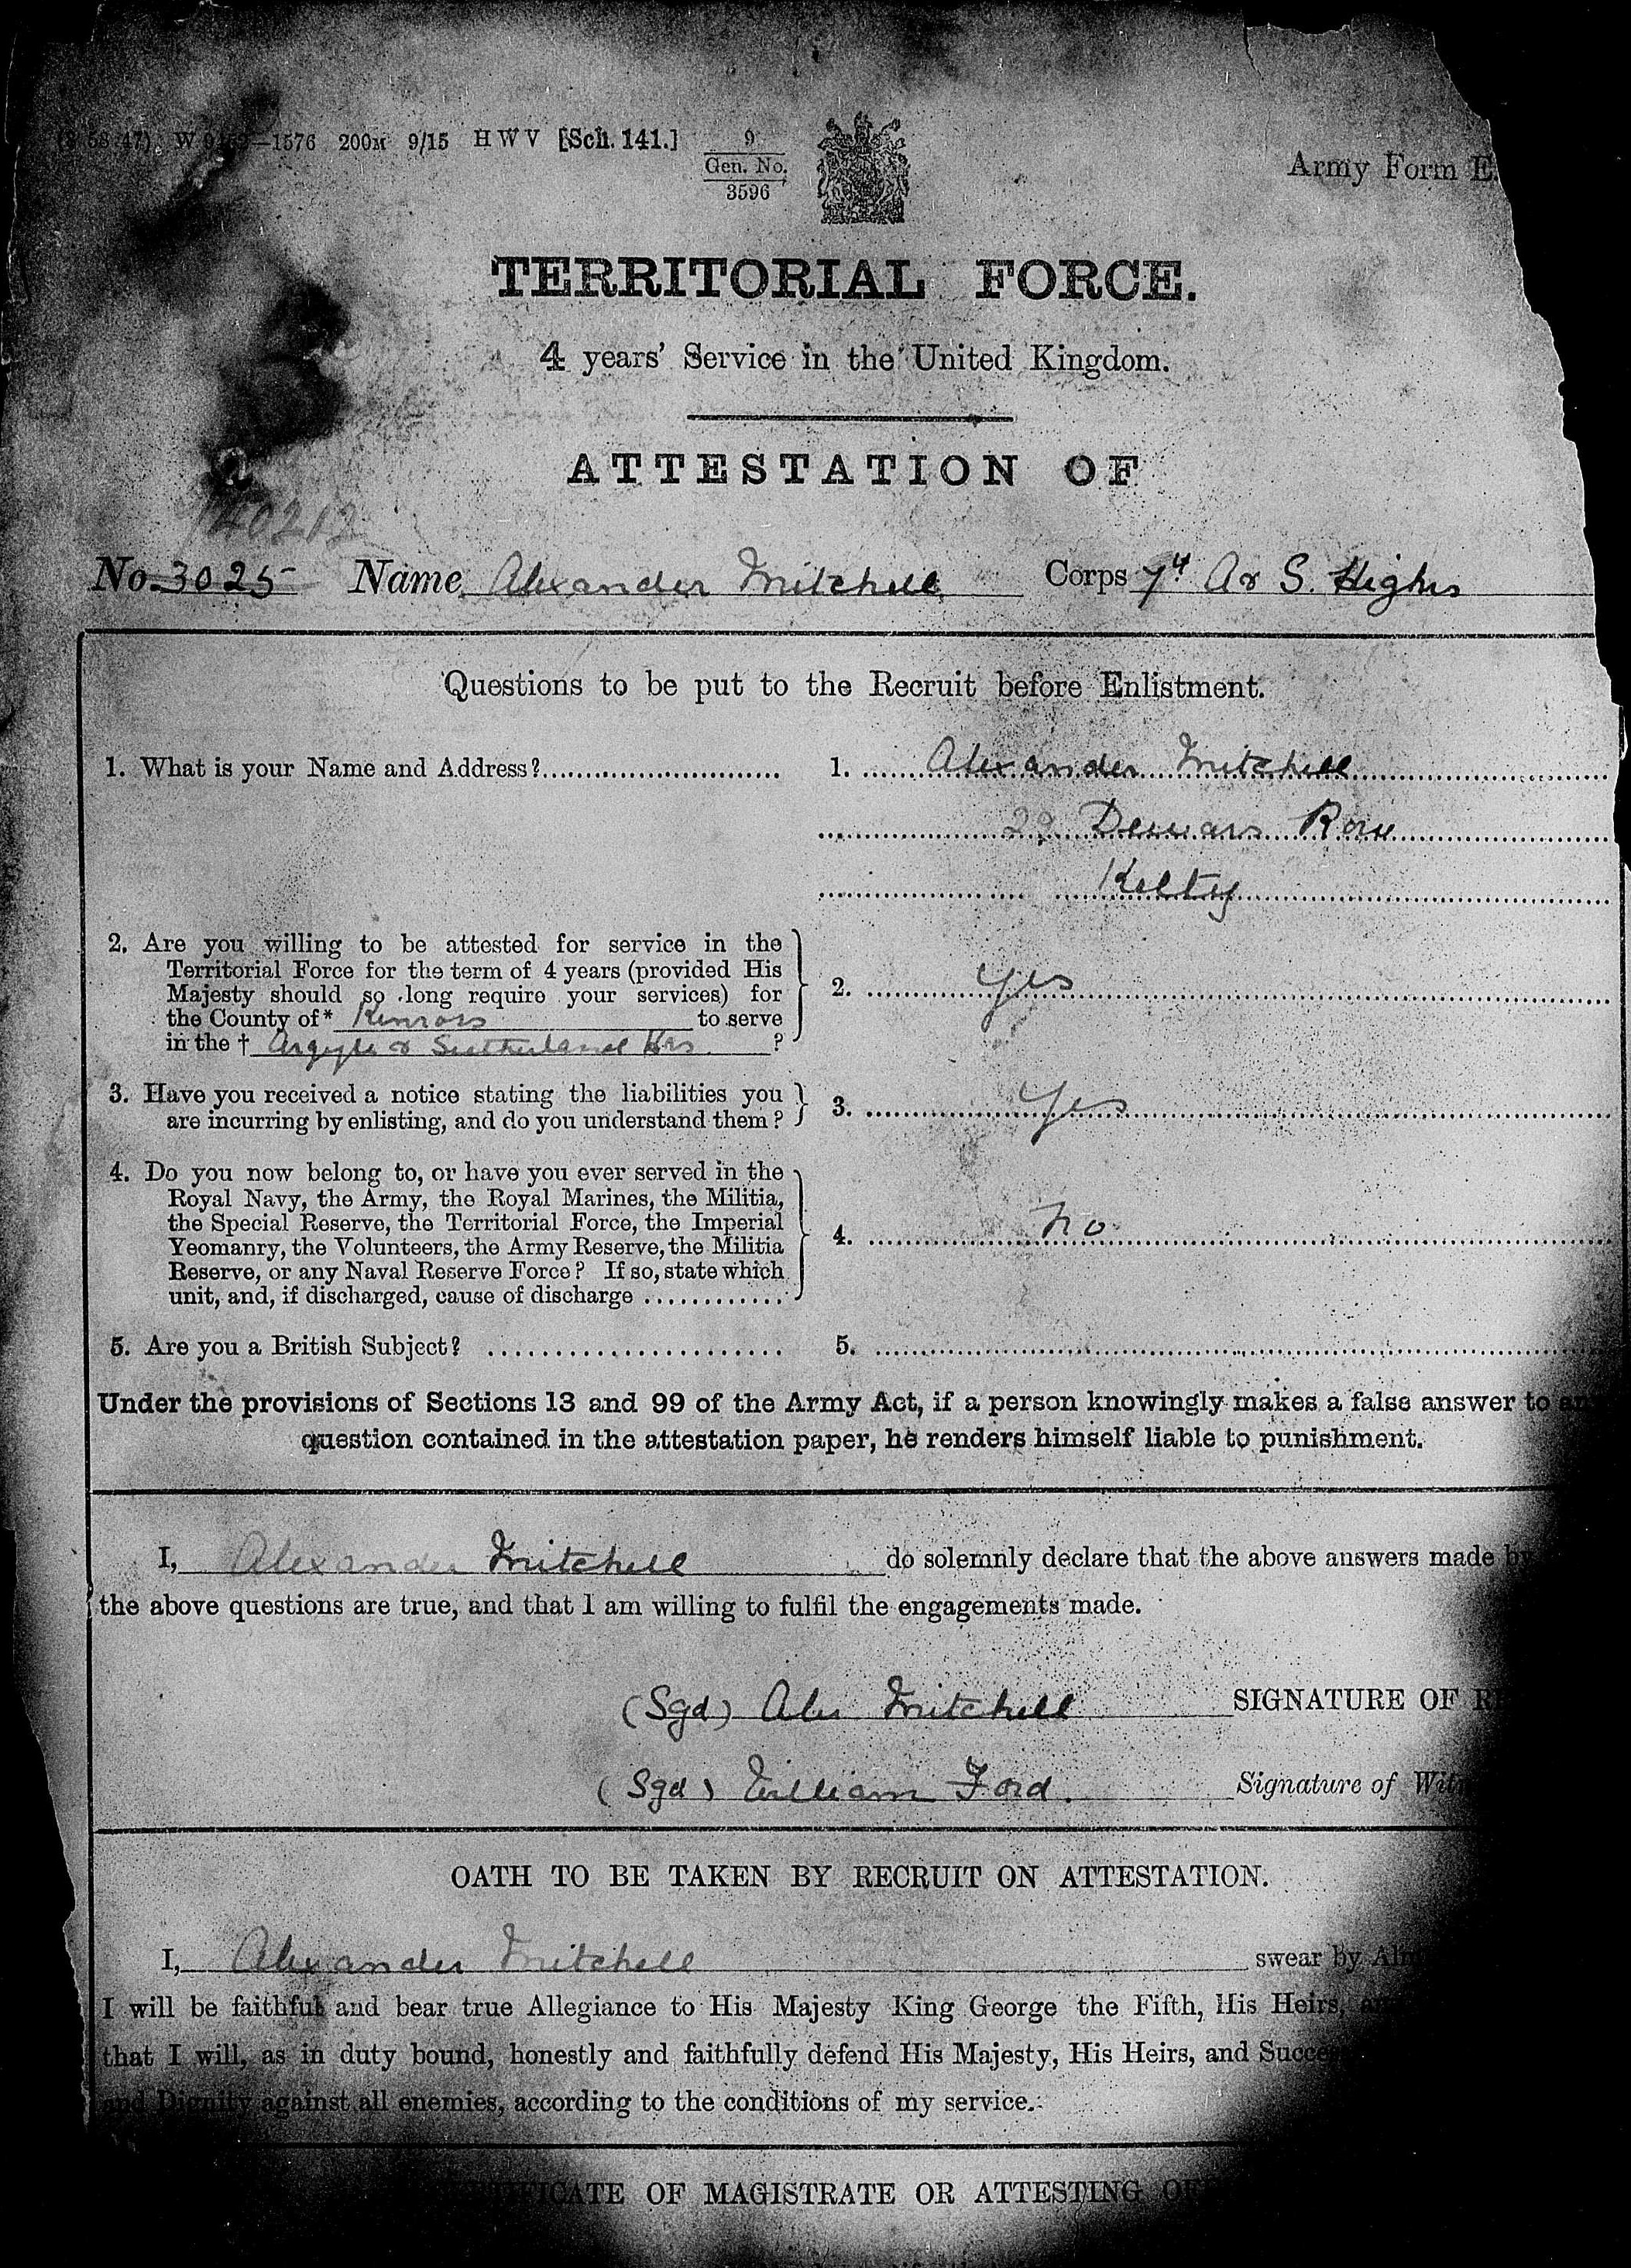 1576 200M 9/15 H W V [Sch. 141.] 9
Gen. No.
3596
Army Form E.
TERRITORIAL FORCE.
4 years' Service in the United Kingdom.
ATTESTATION OF
No. 3025 Name Alexander Mitchell Corps 7th A & S. Highrs
Questions to be put to the Recruit before Enlistment.
1. What is your Name and Address?.......................... 1. Alexander Mitchell
Dewars Row
Kelty
2. Are you willing to be attested for service in the
Territorial Force for the term of 4 years (provided His
Majesty should so long require your services) for
the County of* Kinross to serve
in the † Argyle & Sutherland Hrs. ?
2. Yes
3. Have you received a notice stating the liabilities you
are incurring by enlisting, and do you understand them?
3. Yes
4. Do you now belong to, or have you ever served in the
Royal Navy, the Army, the Royal Marines, the Militia,
the Special Reserve, the Territorial Force, the Imperial
Yeomanry, the Volunteers, the Army Reserve, the Militia
Reserve, or any Naval Reserve Force? If so, state which
unit, and, if discharged, cause of discharge ............
4. No
5. Are you a British Subject? ...................... 5.
Under the provisions of Sections 13 and 99 of the Army Act, if a person knowingly makes a false answer to
question contained in the attestation paper, he renders himself liable to punishment.
I, Alexander Mitchell do solemnly declare that the above answers made by
the above questions are true, and that I am willing to fulfil the engagements made.
(Sgd) Alex Mitchell SIGNATURE OF
(Sgd) William Ford. Signature of
OATH TO BE TAKEN BY RECRUIT ON ATTESTATION.
I, Alexander Mitchell swear by
I will be faithful and bear true Allegiance to His Majesty King George the Fifth, His Heirs,
that I will, as in duty bound, honestly and faithfully defend His Majesty, His Heirs, and
and Dignity against all enemies, according to the conditions of my service.
OF MAGISTRATE OR ATTESTING